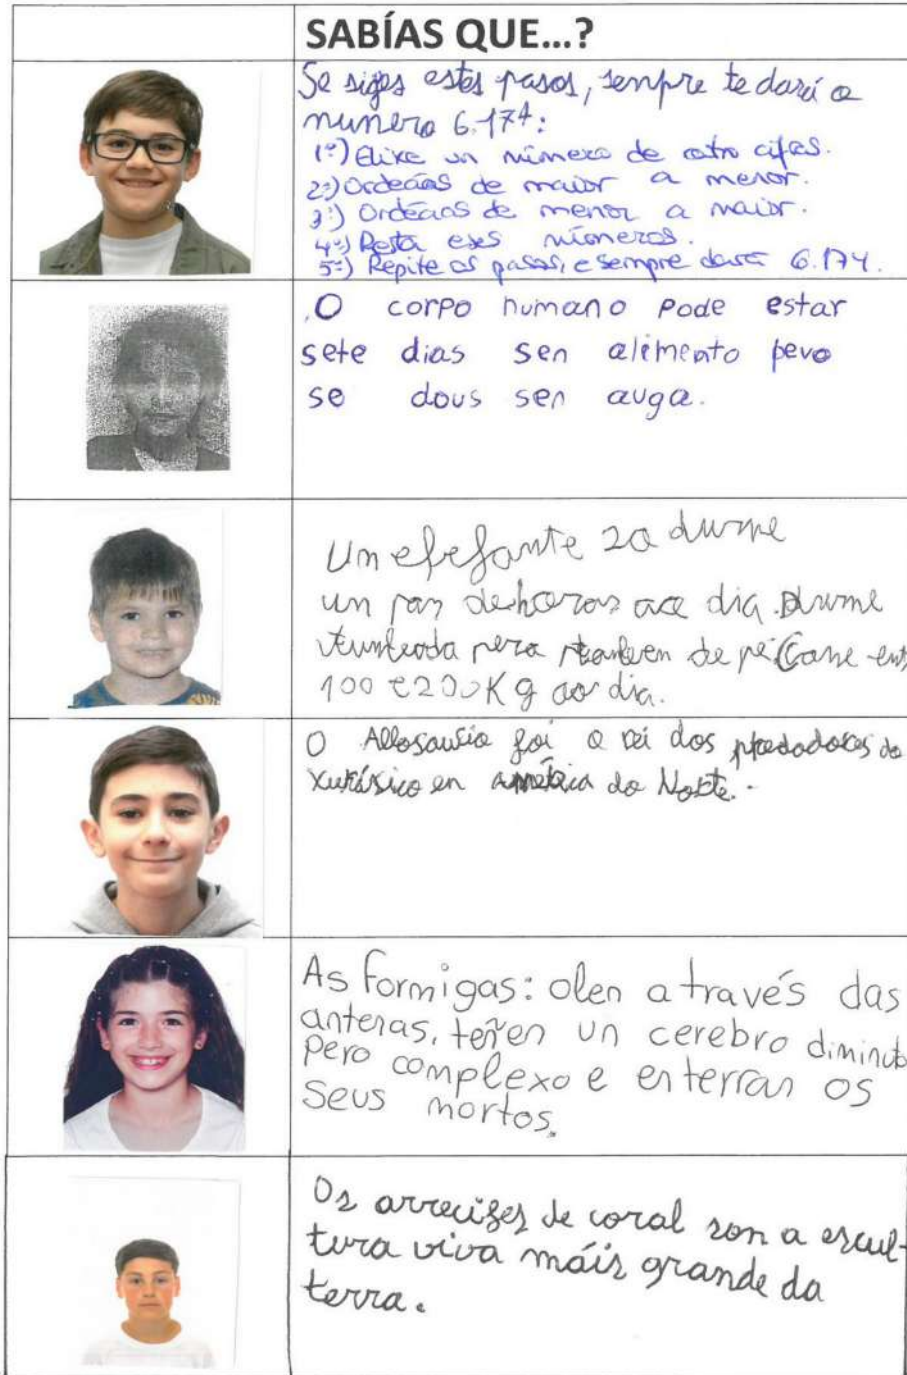 SABÍAS QUE...?
Se siges estes pasos, sempre te dará o
número 6.174:
1º) Elixe un número de catro cifras.
2º) Ordeáos de maior a menor.
3º) Ordeáos de menor a maior.
4º) Resta eses números.
5º) Repite os pasos, e sempre dará 6.174.
O corpo humano pode estar
sete dias sen alimento pero
se dous sen auga.
Un elefante so durme
un par de horas ao dia. Durme
tumbado pero tamben de pé. Come entr
100 e 200 Kg ao dia.
O Allosaurio foi o rei dos predadores do
xurásico en América do Norte.
As formigas: olen a través das
antenas, teñen un cerebro diminuto
pero complexo e enterran os
seus mortos.
Os arrecifes de coral son a escul-
tura viva máis grande da
terra.